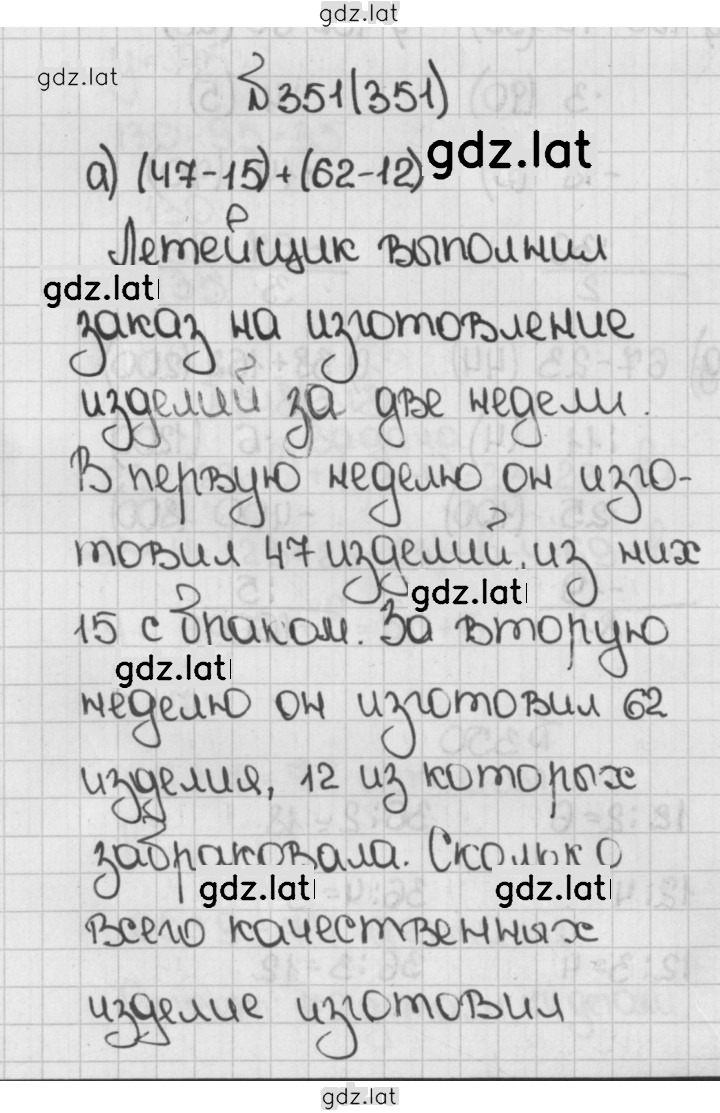 gdz.lat
gdz.lat
№351(351)
gdz.lat
а) (47-15)+(62-12)
Летейщик выполнил
gdz.lat
заказ на изготовление
изделий за две недели.
В первую неделю он изго-
товил 47 изделий, из них
gdz.lat
15 с браком. За вторую
gdz.lat
неделю он изготовил 62
изделия, 12 из которых
забраковала. Сколько
gdz.lat gdz.lat
всего качественных
изделие изготовил
gdz.lat